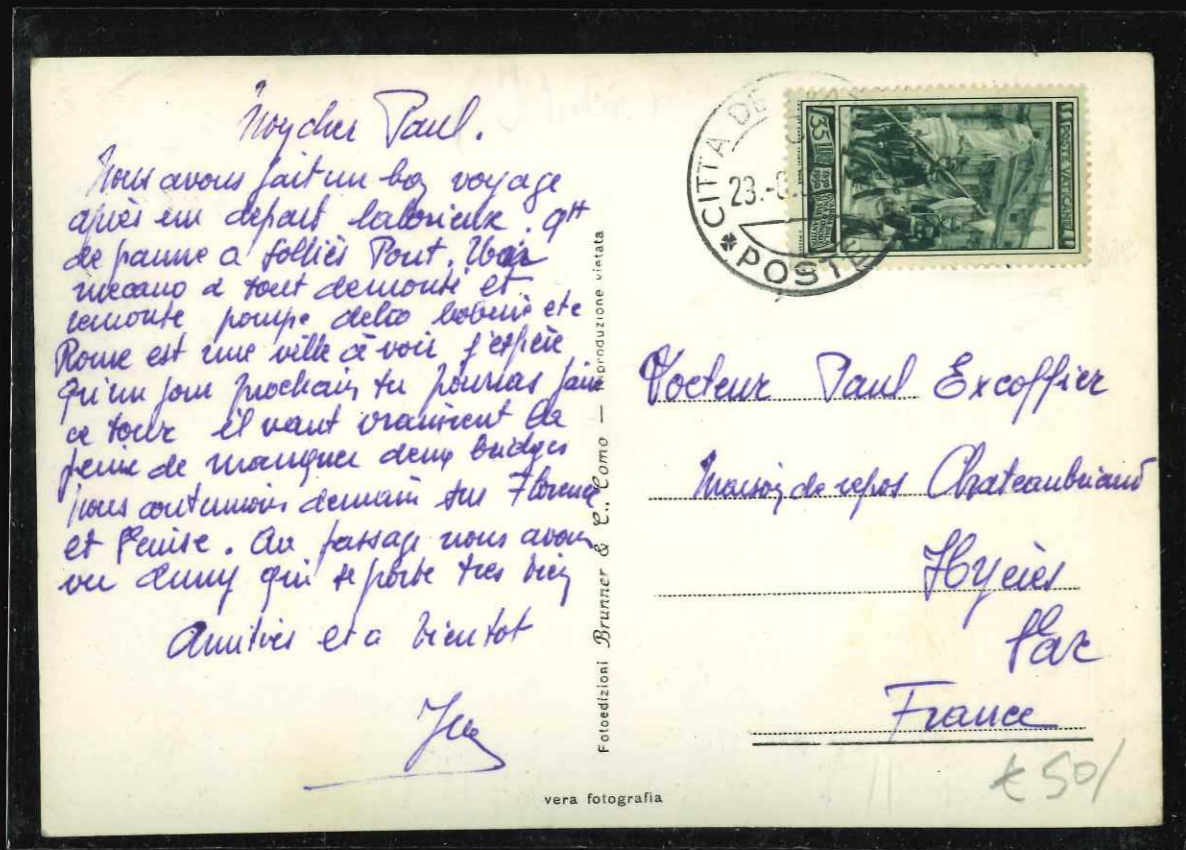 Mon cher Paul.
Nous avons fait un bon voyage
après un depart laborieux. 9H
de panne a Solliès Pont. Mon
mecano a tout demonté et
remonté pompe delco bobine etc
Rome est une ville à voir j'espère
qu'un jour prochain tu pourras faire
ce tour il vaut vraiment la
peine de manquer deux bridges
nous continuons demain sur Florence
et Venise. Au passage nous avons
vu qui se porte tres bien
Amitiés et a bientot
Fotoedizioni Brunner & C., Como — Riproduzione vietata
vera fotografia
CITTA DE
23.
POSTE
POSTE VATICANE
35
Docteur Paul Excoffier
Maison de repos Chateaubriand
Hyères
Var
France
€ 50/